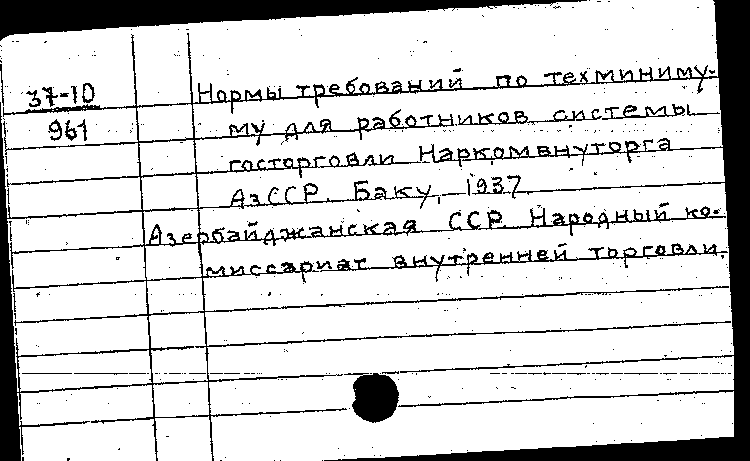 37-10
961
Нормы требований по техминиму-
му для работников системы
госторговли Наркомвнуторга
АзССР. Баку, 1937.
Азербайджанская ССР. Народный ко-
миссариат внутренней торговли.